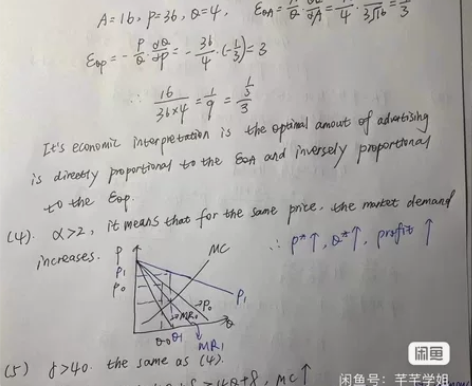 A=16, P=36, Q=4, E_QA = A/Q · ∂Q/∂A = 16/4 · 1/3√16 = 1/3
E_QP = - P/Q · ∂Q/∂P = - 36/4 · (-1/3) = 3
∴ 16/36×4 = 1/9 = (1/3)/3
It's economic interpretation is the optimal amout of advertising
is directly proportional to the E_QA and inversely proportional
to the E_QP.
(4). α>2, it means that for the same price, the market demand
increases.
∴ P*↑, Q*↑, profit ↑
P
MC
P1
P0
P0
P1
MR0
Q0 Q1
Q
MR1
(5) γ>40. the same as (4).
MC↑
闲鱼
闲鱼号：芊芊学姐